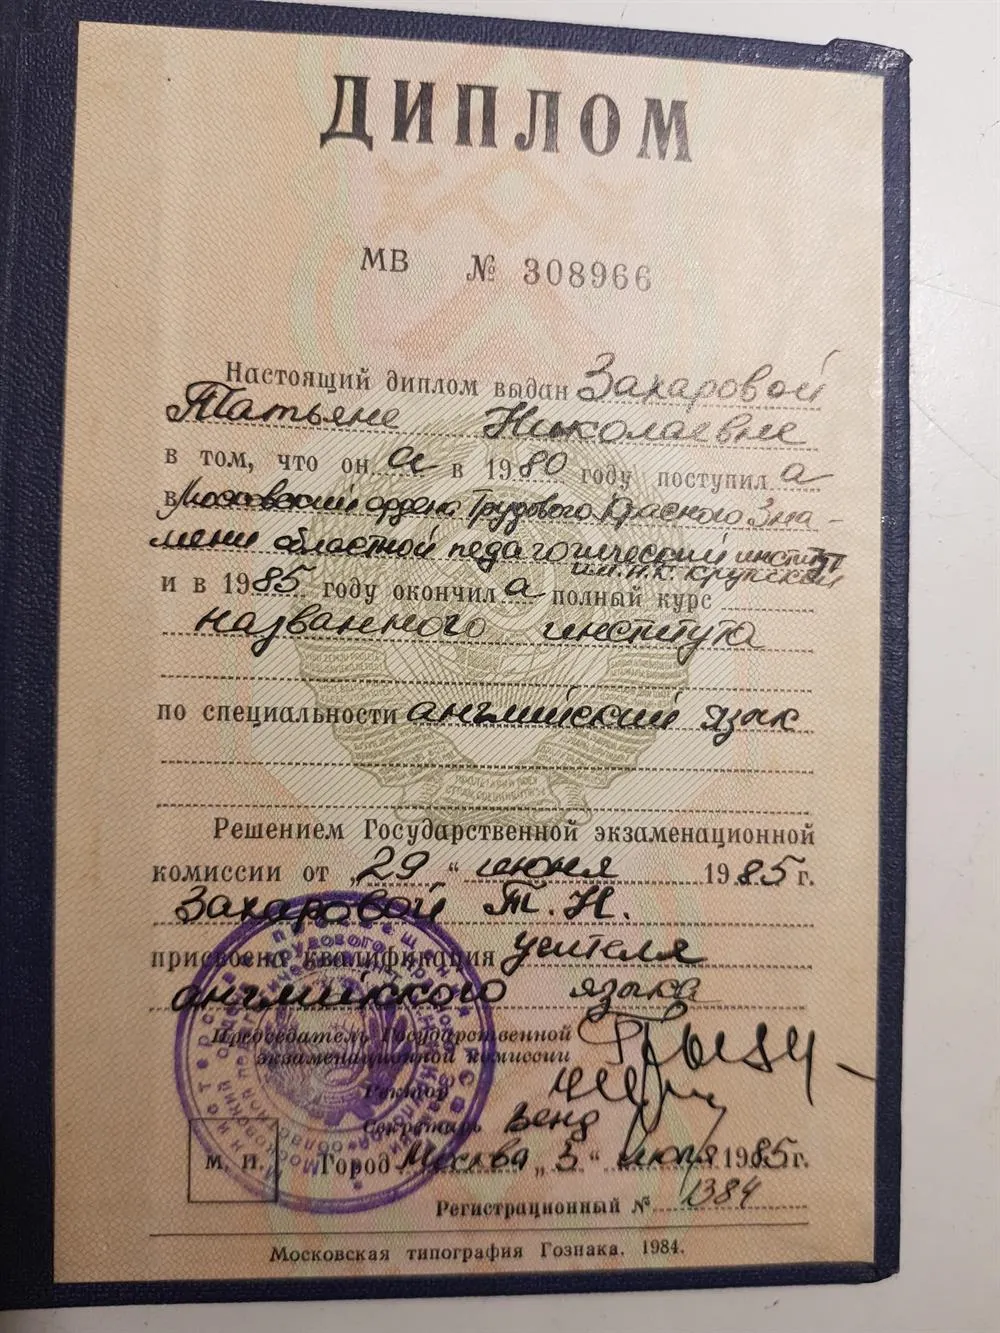 ДИПЛОМ
МВ № 308966
Настоящий диплом выдан Захаровой
Татьяне Николаевне
в том, что он а в 1980 году поступил а
в Московский ордена Трудового Красного Зна-
мени областной педагогический институт
им. Н.К. Крупской
и в 1985 году окончил а полный курс
названного института
по специальности английский язык
Решением Государственной экзаменационной
комиссии от „29“ июня 1985 г.
Захаровой Т. Н.
присвоена квалификация учителя
английского языка
Председатель Государственной
экзаменационной комиссии
Ректор
Секретарь
М. П. Город Москва „3“ июля 1985 г.
Регистрационный № 1384
Московская типография Гознака. 1984.